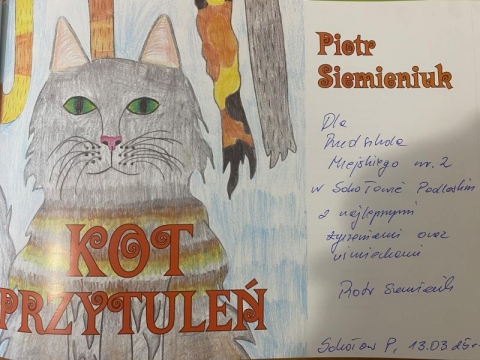 Piotr
Siemieniuk
KOT
PRZYTULEŃ
Dla
Przedszkola
Miejskiego nr. 2
w Sokołowie Podlaskim
z najlepszymi
życzeniami oraz
uśmiechami
Piotr Siemieniuk
Sokołów P, 13.03